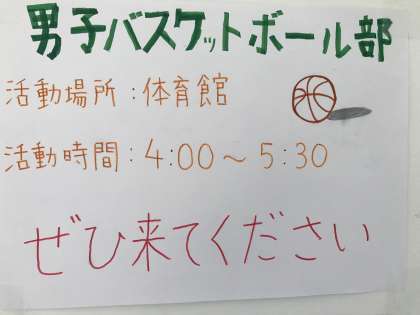 男子バスケットボール部
活動場所:体育館
活動時間:4:00～5:30
ぜひ来てください